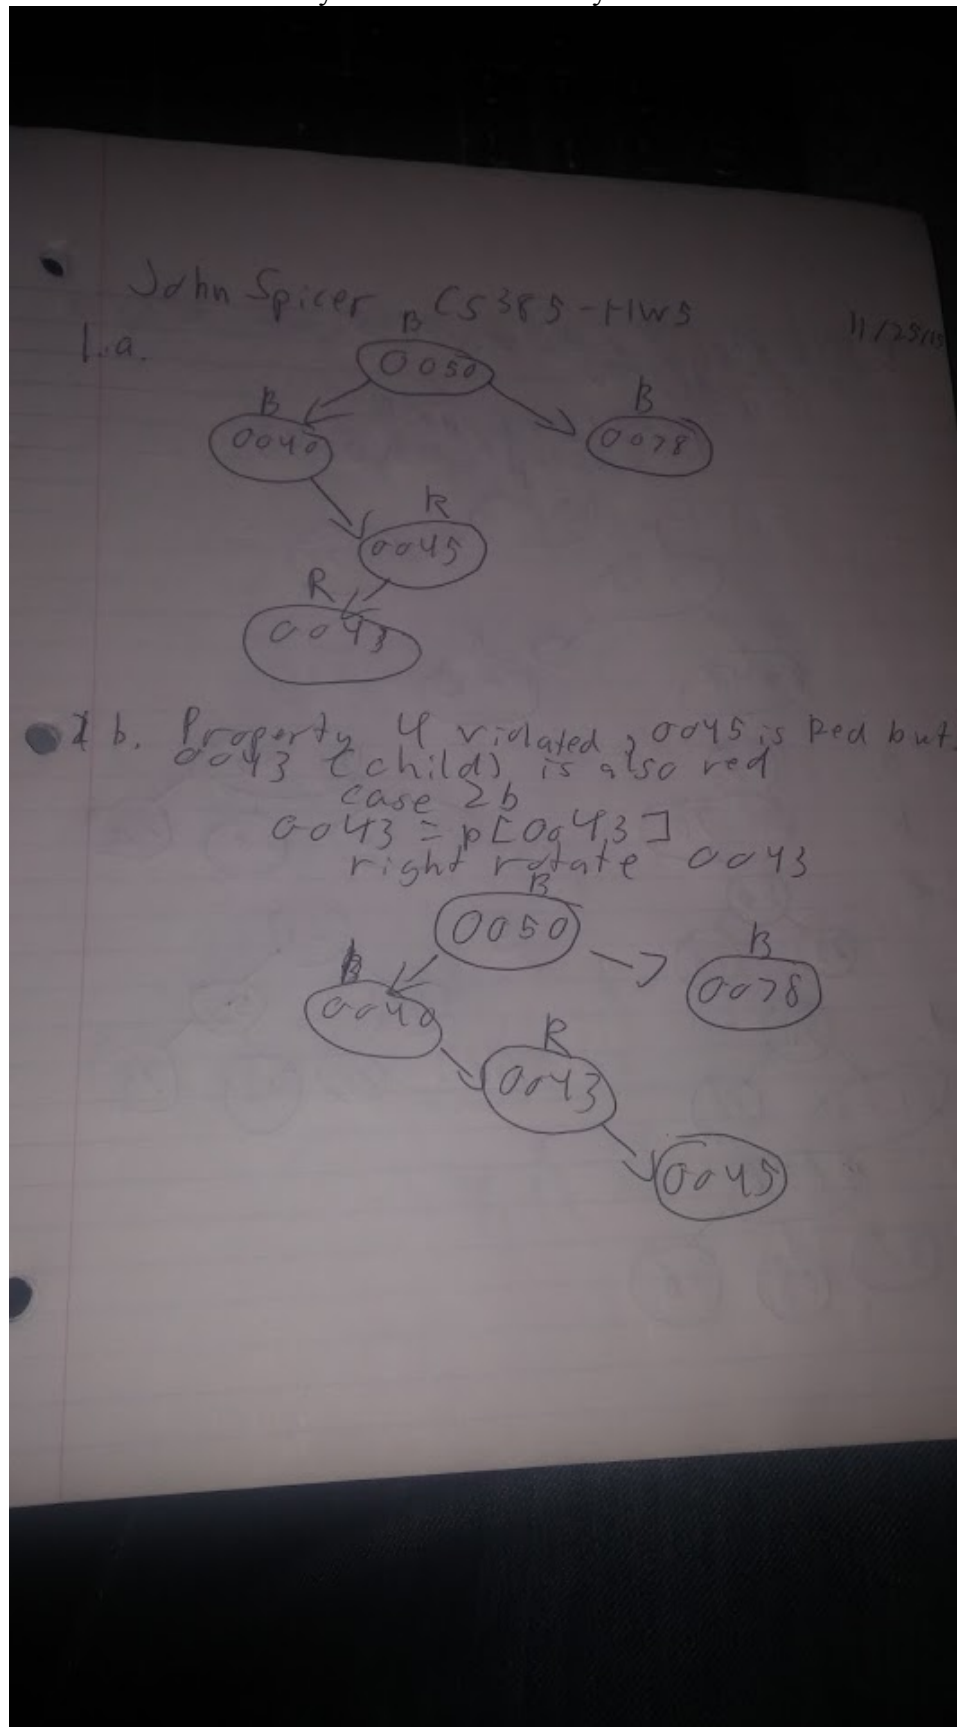 John Spicer CS385-HW5
1.a.
B
0050
B
0040
B
0078
R
0045
R
0043
b. Property 4 violated, 0045 is Red but
0043 (child) is also red
case 2b
0043 = p[0043]
right rotate 0043
B
0050
B
0040
B
0078
R
0043
0045